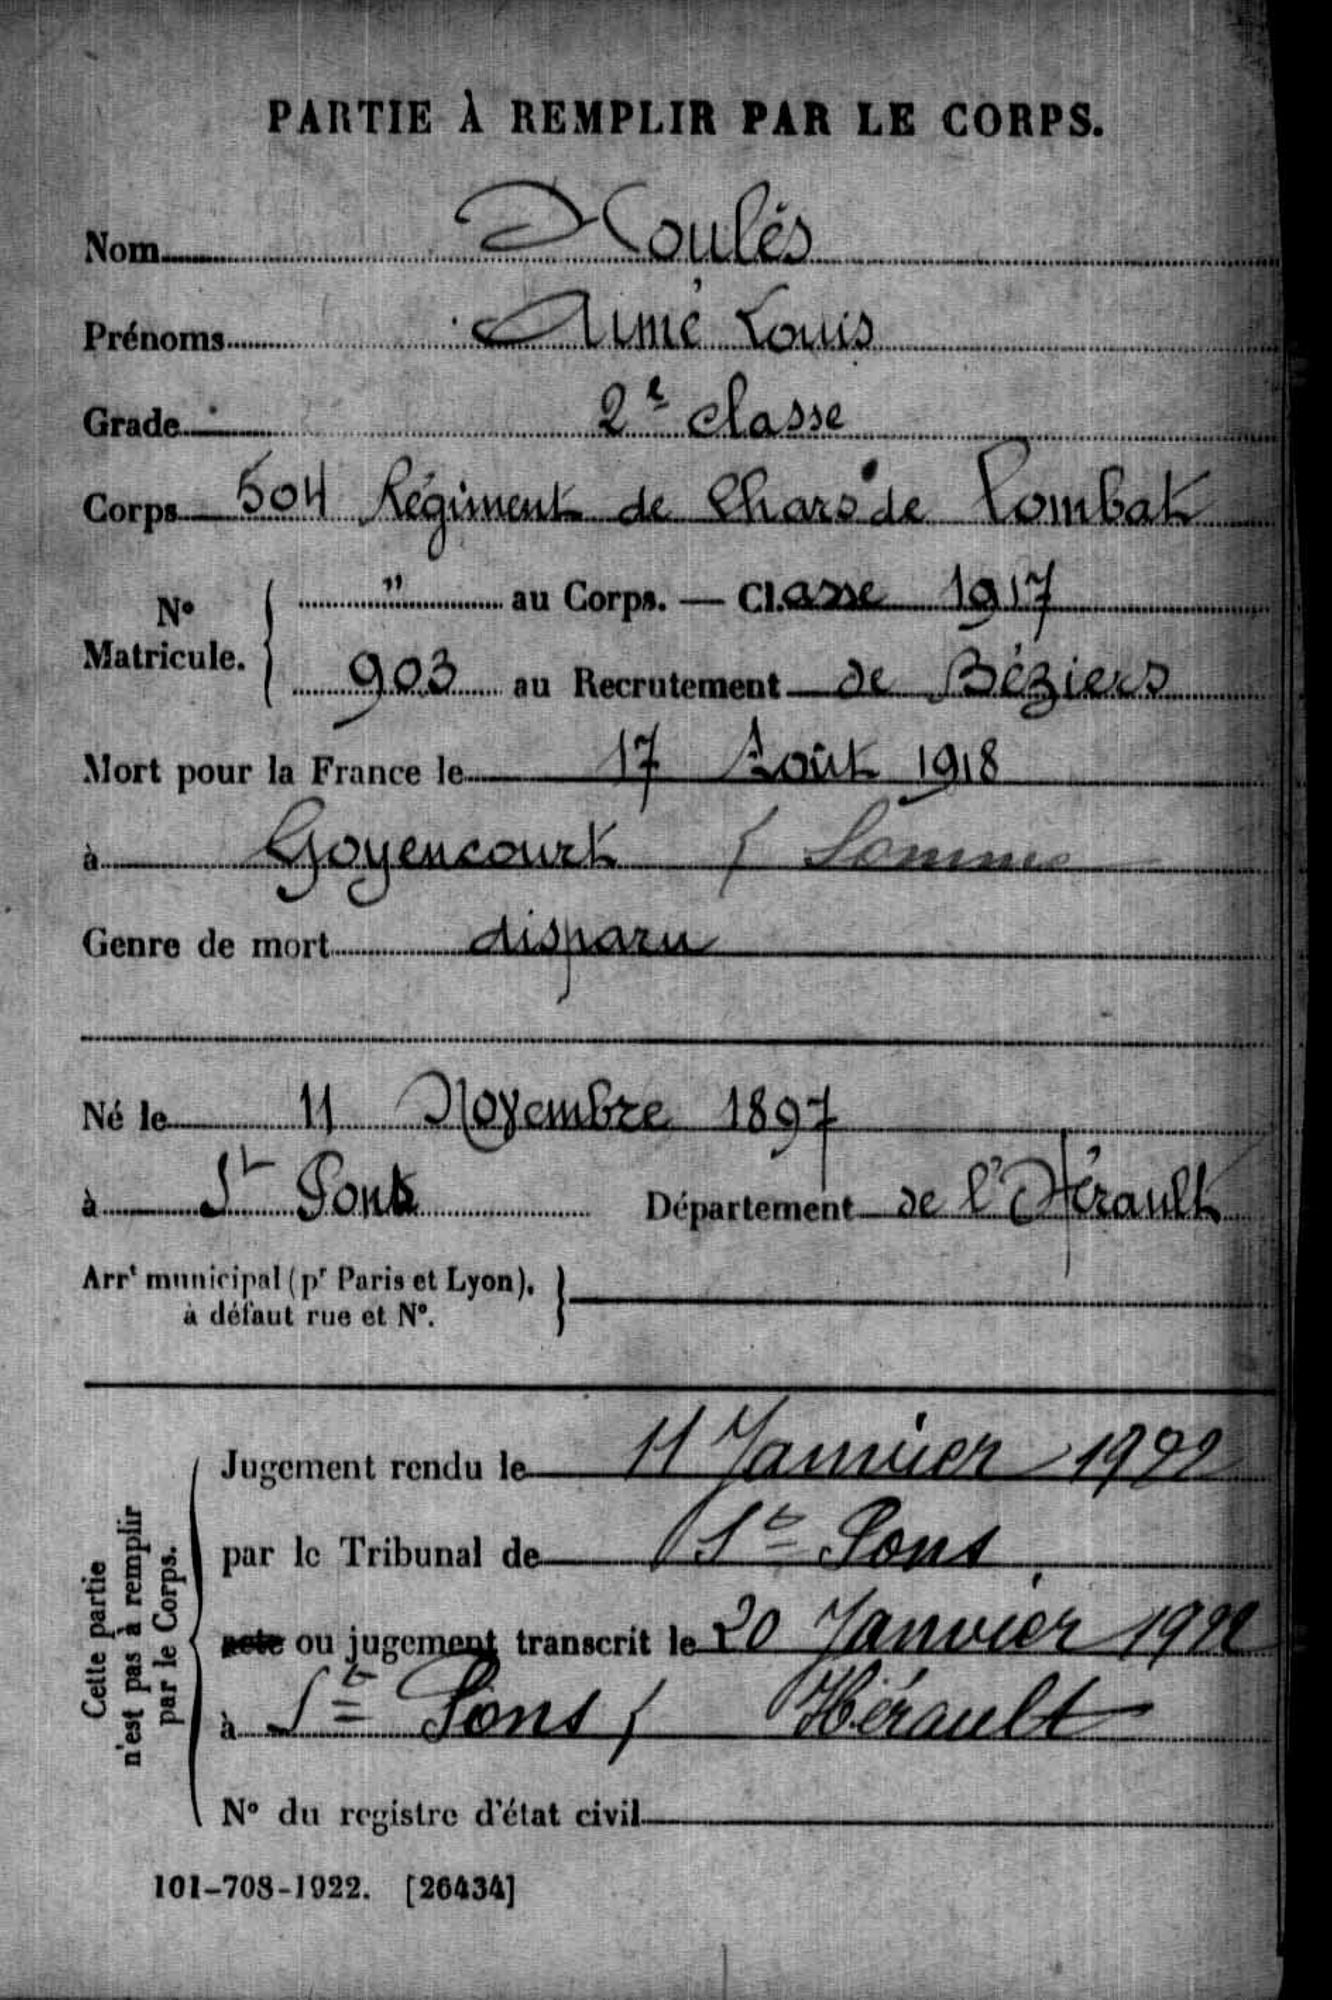 PARTIE À REMPLIR PAR LE CORPS.
Nom Noulés
Prénoms Aimé Louis
Grade 2e classe
Corps 504 Régiment de Chars de Combat
No Matricule. " au Corps. — Cl.asse 1917
903 au Recrutement de Béziers
Mort pour la France le 17 Août 1918
à Goyencourt ( Somme
Genre de mort disparu
Né le 11 Novembre 1897
à St Pons Département de l'Hérault
Arrt municipal (pr Paris et Lyon),
à défaut rue et No.
Cette partie n'est pas à remplir par le Corps.
Jugement rendu le 11 Janvier 1922
par le Tribunal de St Pons
acte ou jugement transcrit le 20 Janvier 1922
à St Pons ( Hérault
No du registre d'état civil
101-708-1922. [26434]